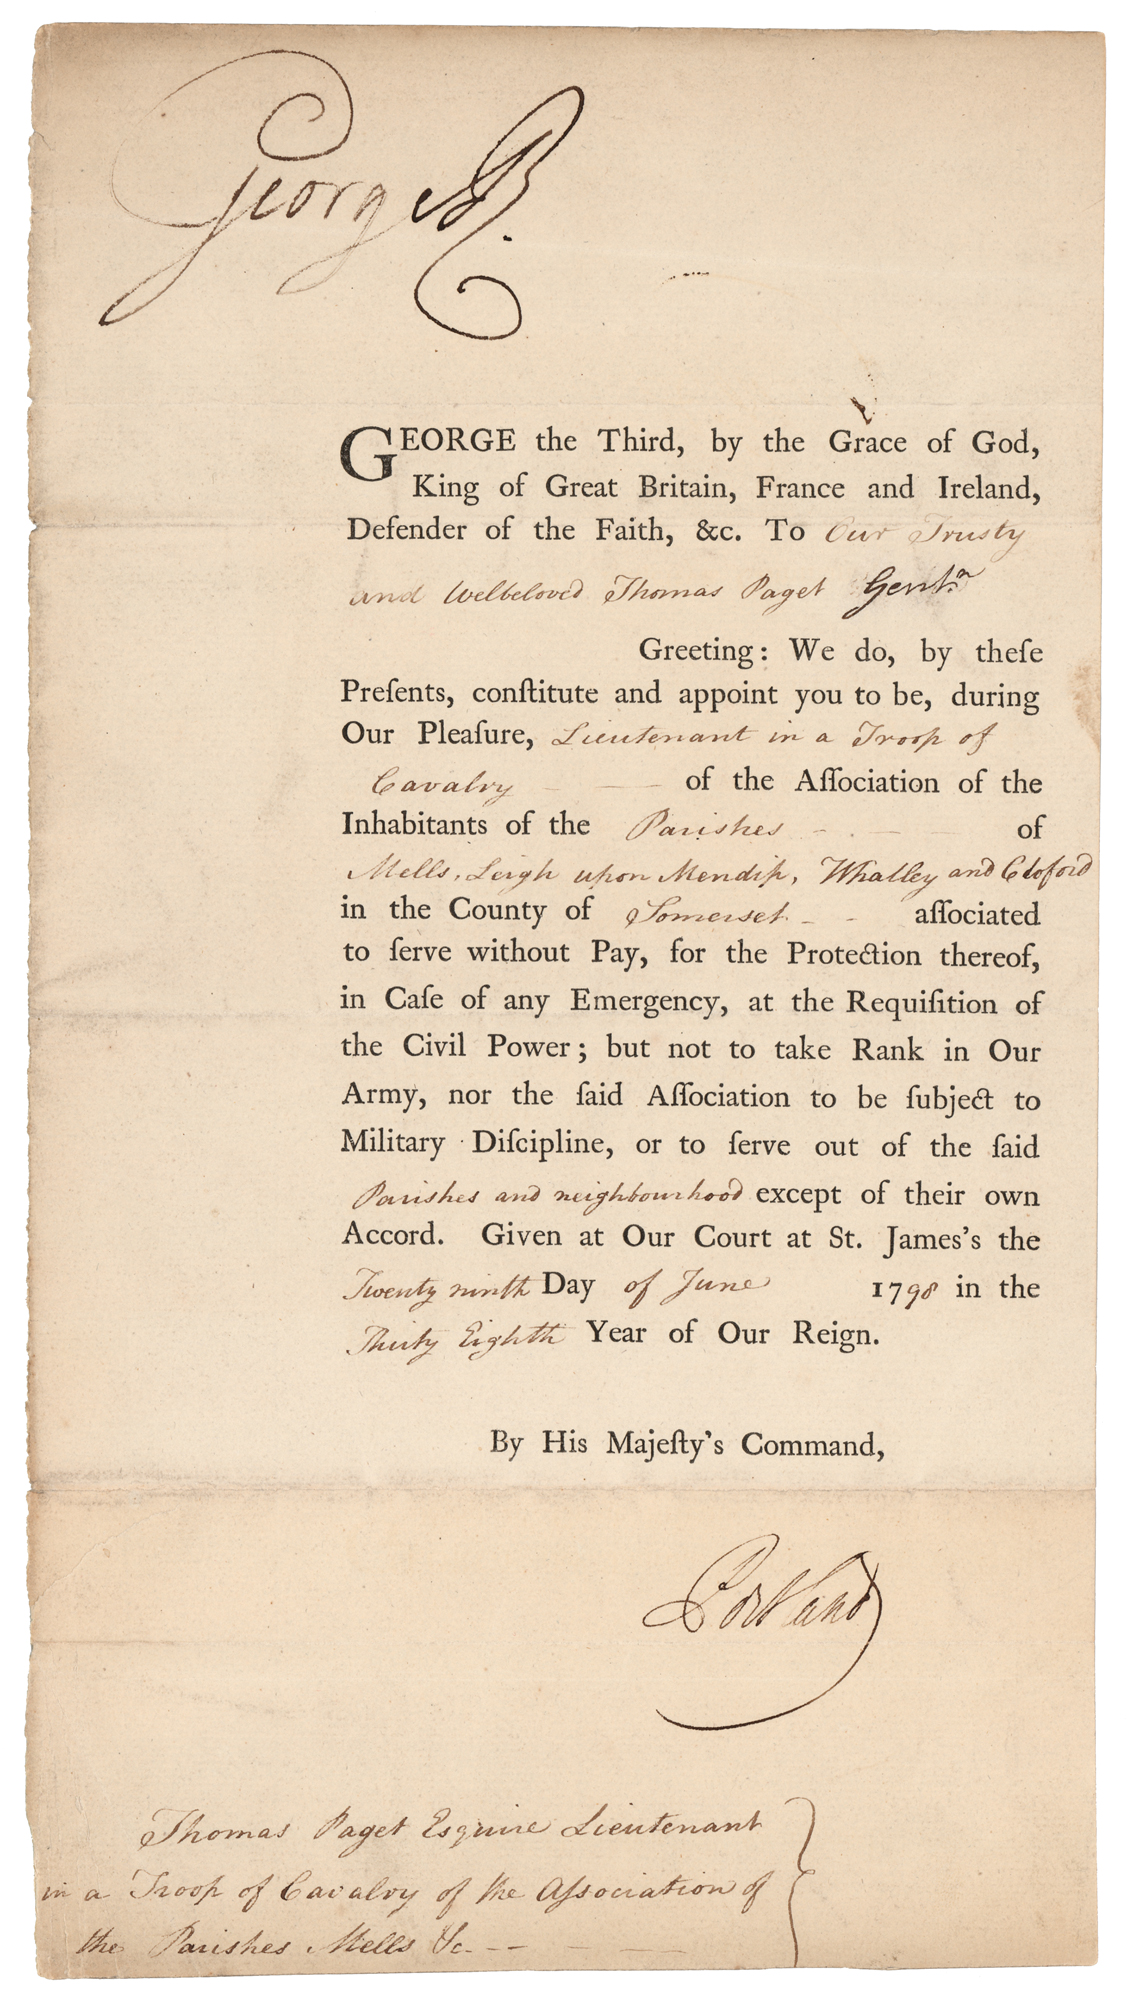 George R.
GEORGE the Third, by the Grace of God,
King of Great Britain, France and Ireland,
Defender of the Faith, &c. To Our Trusty
and Welbeloved Thomas Paget Gentn.
Greeting: We do, by theſe
Preſents, conſtitute and appoint you to be, during
Our Pleaſure, Lieutenant in a Troop of
Cavalry - — of the Aſſociation of the
Inhabitants of the Parishes - - — of
Mells, Leigh upon Mendip, Whatley and Cloford
in the County of Somerset - - aſſociated
to ſerve without Pay, for the Protection thereof,
in Caſe of any Emergency, at the Requiſition of
the Civil Power; but not to take Rank in Our
Army, nor the ſaid Aſſociation to be ſubject to
Military Diſcipline, or to ſerve out of the ſaid
Parishes and neighbourhood except of their own
Accord. Given at Our Court at St. James's the
Twenty ninth Day of June 1798 in the
Thirty Eighth Year of Our Reign.
By His Majeſty's Command,
Portland
Thomas Paget Esquire Lieutenant
in a Troop of Cavalry of the Aſsociation of
the Parishes Mells &c. - - - —